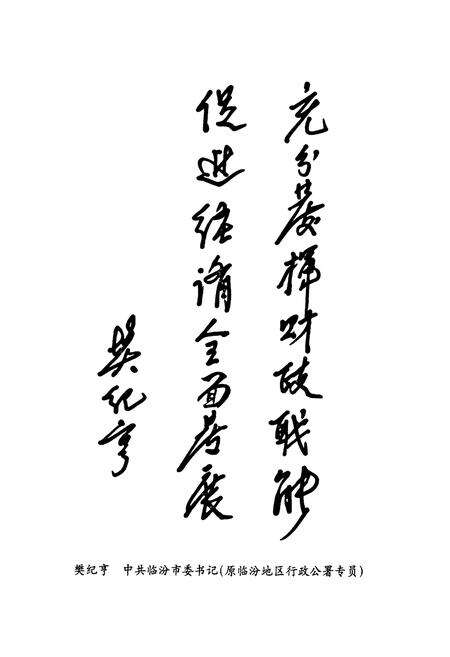 充分发挥财政职能
促进经济全面发展
樊纪亨
樊纪亨 中共临汾市委书记(原临汾地区行政公署专员)